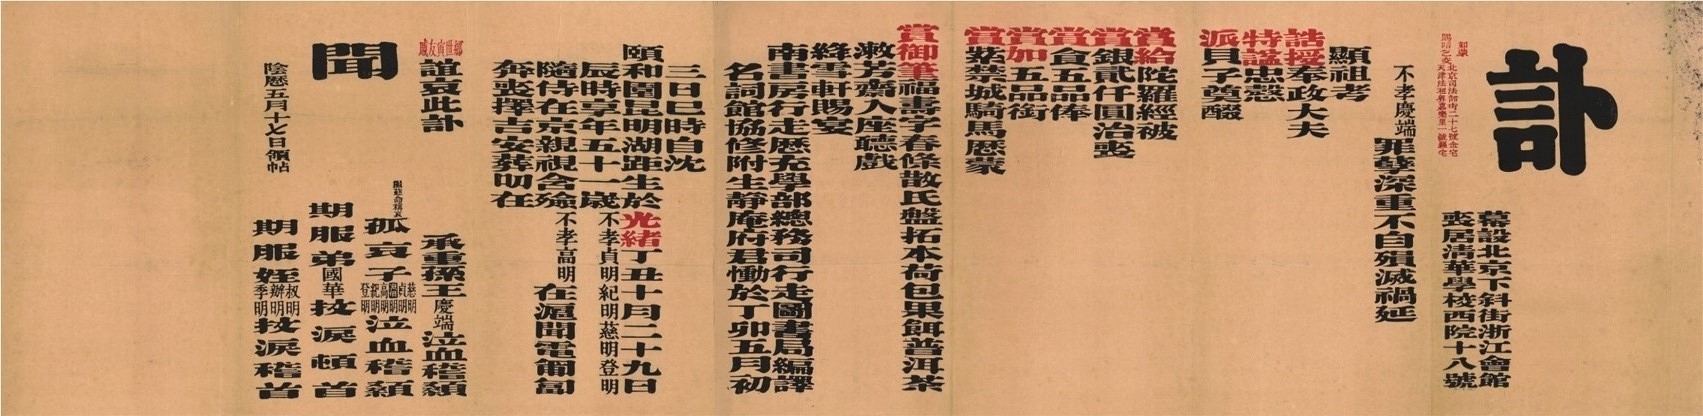 訃
幕設北京下斜街浙江會館
喪居清華學校西院十八號
如蒙
賜唁之交
北京司法部街二十七號金宅
天津法租界嘉樂里一號羅宅
不孝慶端罪孽深重不自殞滅禍延
顯祖考
誥授奉政大夫
特諡忠愨
派貝子奠醊
賞給陀羅經被
賞銀貳仟圓治喪
賞食五品俸
賞加五品銜
賞紫禁城騎馬歷蒙
賞御筆福壽字春條散氏盤拓本荷包果餌普洱茶
漱芳齋入座聽戲
絳雪軒賜宴
南書房行走歷充學部總務司行走圖書局編譯
名詞館協修附生靜庵府君慟於丁卯五月初
三日巳時自沈
頤和園昆明湖距生於光緒丁丑十月二十九日
辰時享年五十一歲不孝貞明紀明慈明登明
隨侍在京親視含殮不孝高明在滬聞電匍匐
奔喪擇吉安葬叨在
鄉世寅友戚誼哀此訃
聞
陰歷五月十七日領帖
承重孫王慶端泣血稽顙
孤哀子慈明貞明高明紀明登明泣血稽顙
期服弟國華抆淚頓首
期服姪叔明辦明季明抆淚稽首